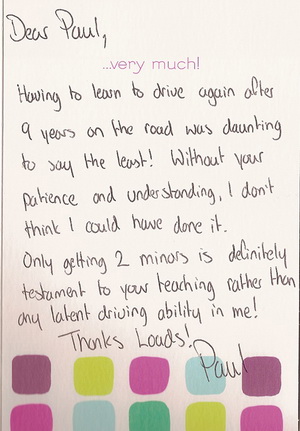 Dear Paul,
...very much!
Having to learn to drive again after
9 years on the road was daunting
to say the least! Without your
patience and understanding, I don't
think I could have done it.
Only getting 2 minors is definitely
testament to your teaching rather than
any latent driving ability in me!
Thanks Loads!
Paul